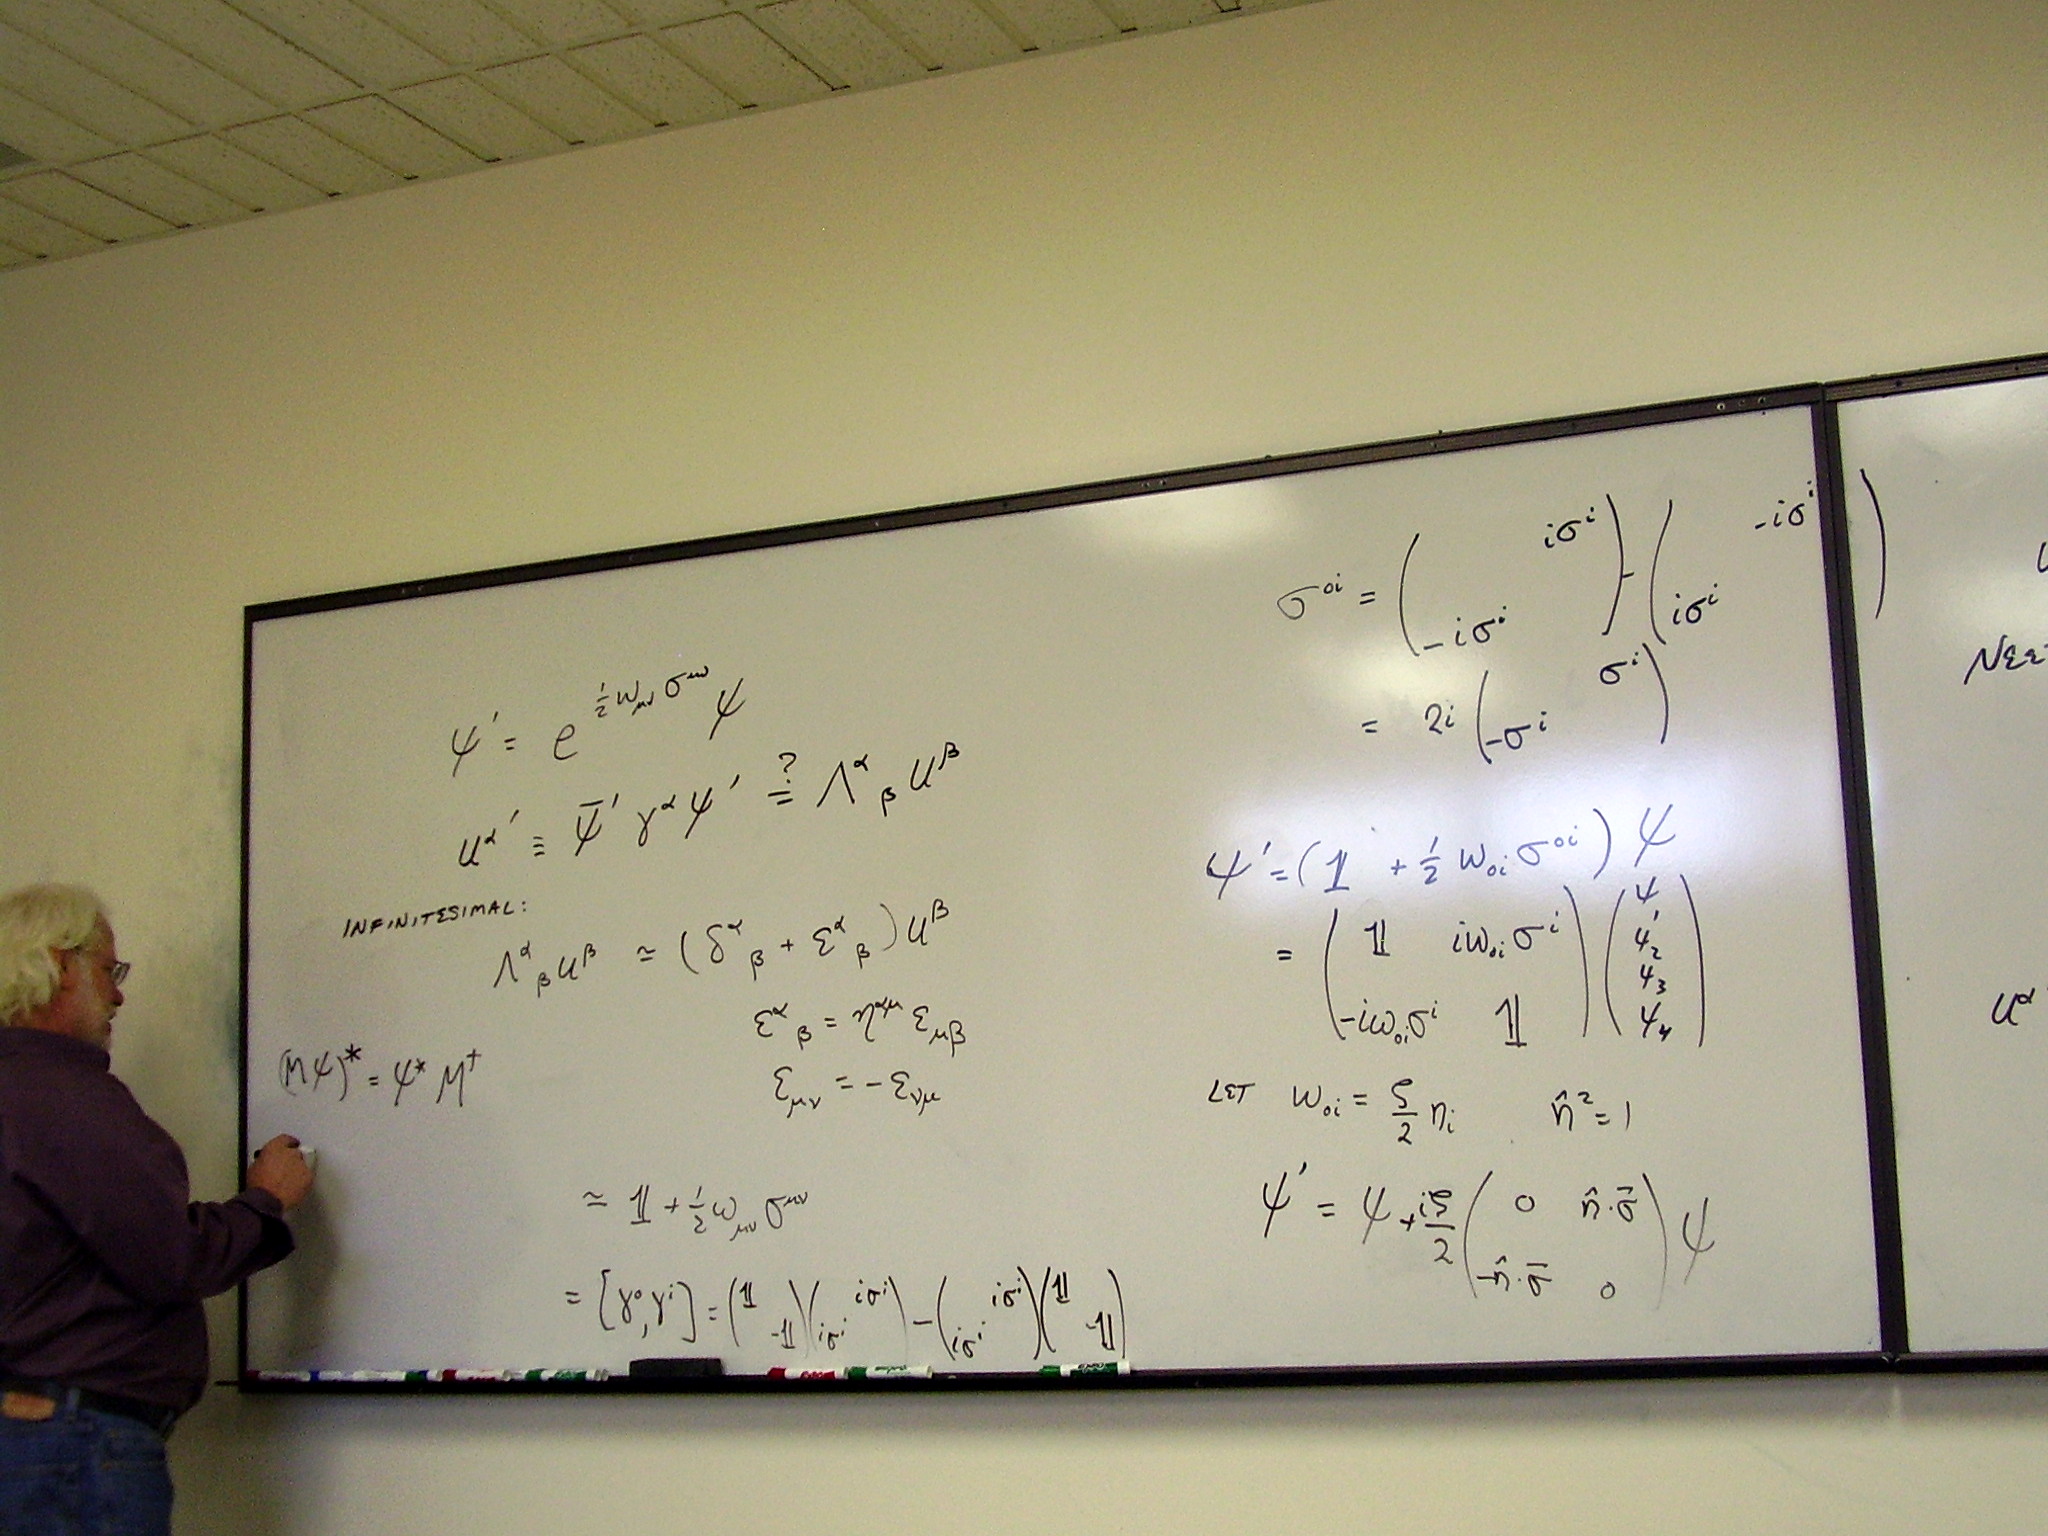 ψ' = e^{½ ω_{μν} σ^{μν}} ψ
u^α' ≡ ψ̄' γ^α ψ' ≟ Λ^α_β u^β
INFINITESIMAL:
Λ^α_β u^β ≃ (δ^α_β + ε^α_β) u^β
ε^α_β = η^{αμ} ε_{μβ}
ε_{μν} = -ε_{νμ}
(Mψ)* = ψ* M†
≃ 𝟙 + ½ ω_{μν} σ^{μν}
= [γ⁰, γ^i] = (𝟙 -𝟙)(iσ^i iσ^i) - (iσ^i iσ^i)(𝟙 -𝟙)
σ^{0i} = (iσ^i -iσ^i) - (-iσ^i iσ^i)
= 2i (σ^i -σ^i)
ψ' = (𝟙 + ½ ω_{0i} σ^{0i}) ψ
= (𝟙 iω_{0i}σ^i -iω_{0i}σ^i 𝟙)(ψ_1 ψ_2 ψ_3 ψ_4)
LET ω_{0i} = ζ/2 n_i n̂² = 1
ψ' = ψ + iζ/2 (0 n̂·σ⃗ -n̂·σ⃗ 0) ψ
u^α